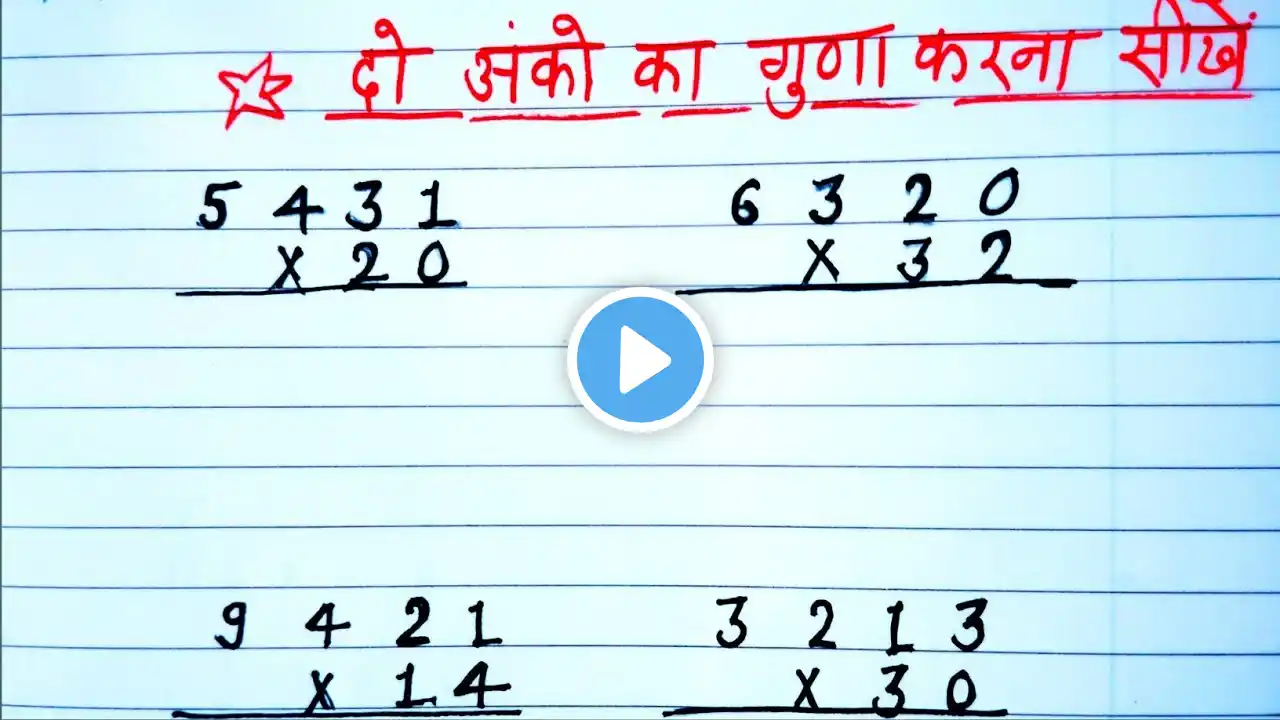 ☆ दो अंको का गुणा करना सीखें
5 4 3 1
x 2 0
6 3 2 0
x 3 2
9 4 2 1
x 1 4
3 2 1 3
x 3 0